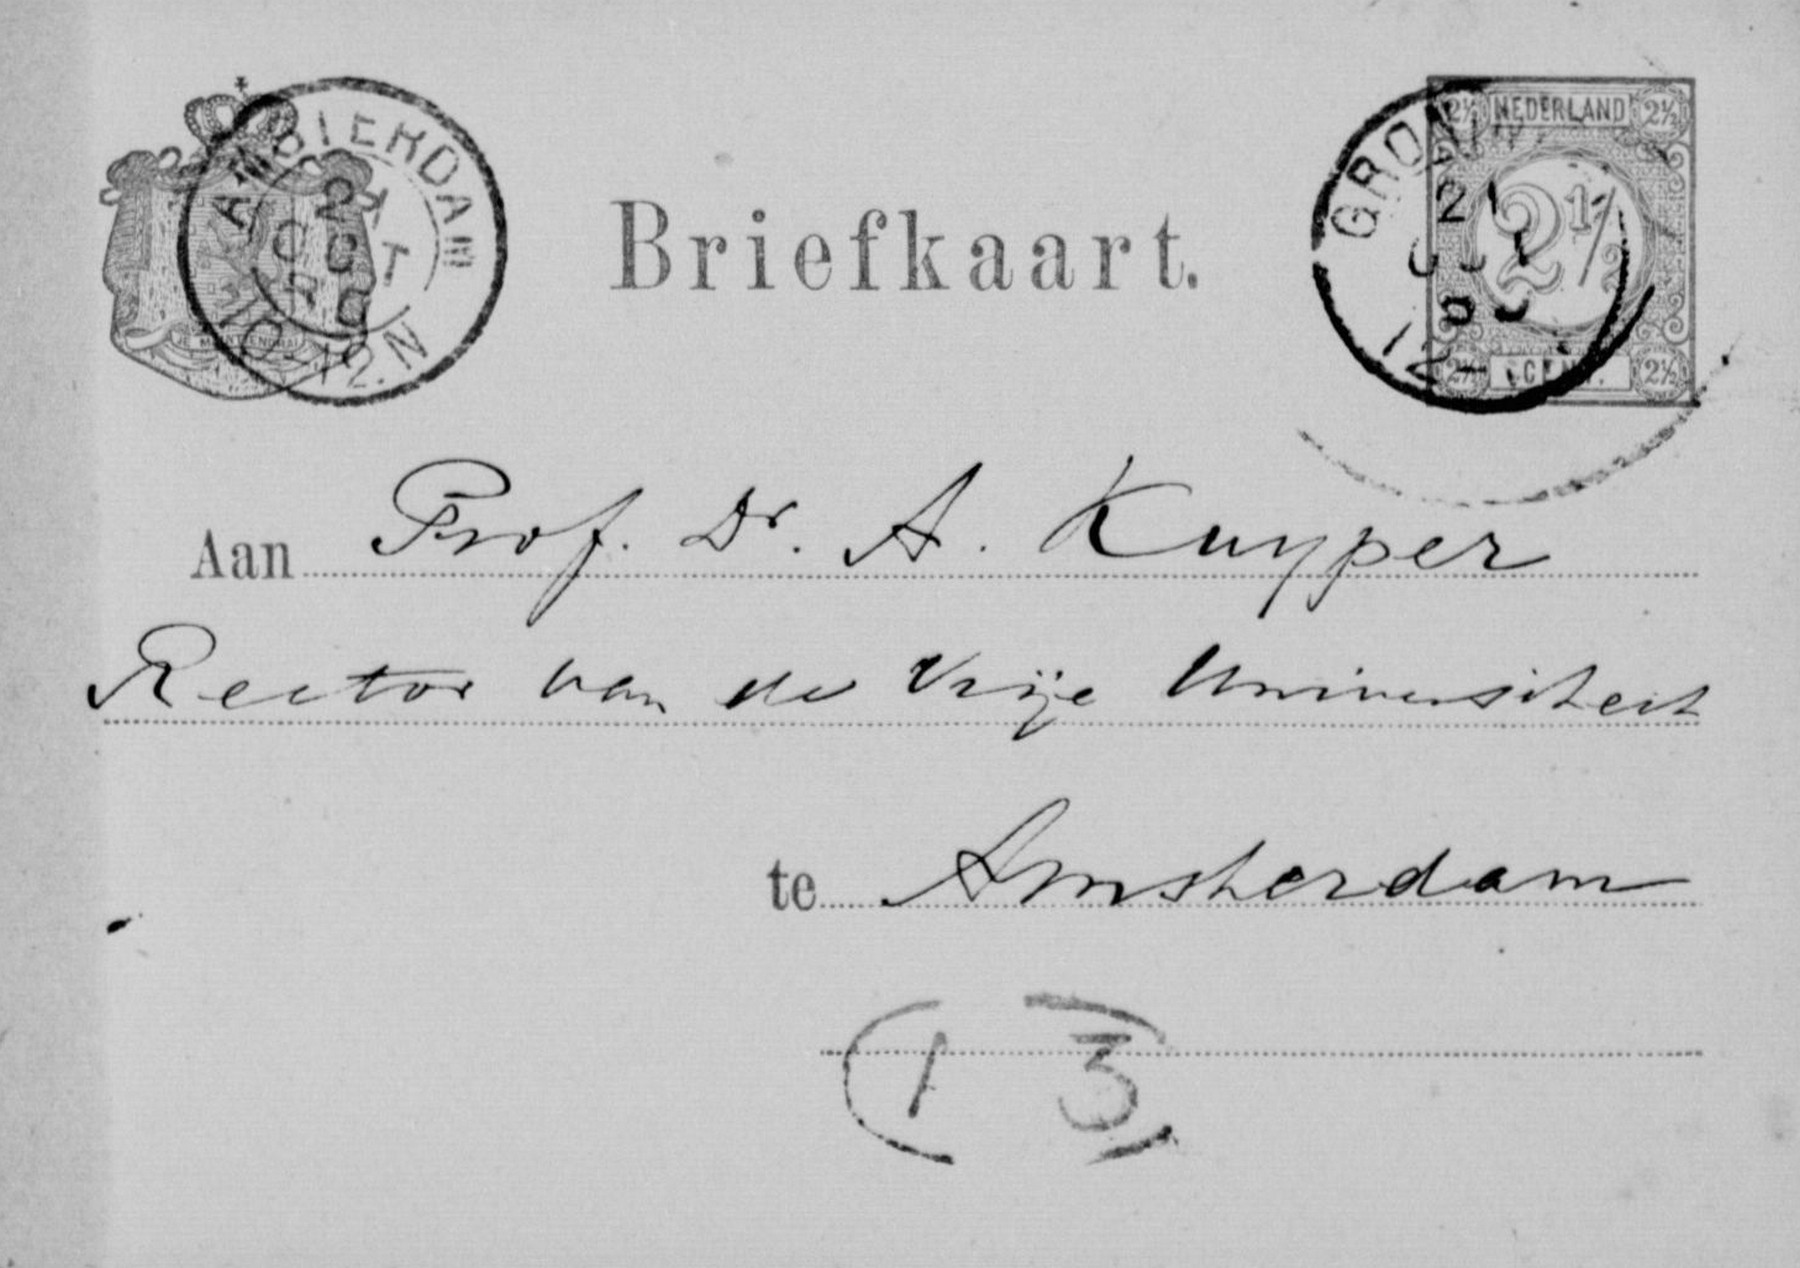 AMSTERDAM
21
OCT
80
10-12.N
JE MAINTIENDRAI
Briefkaart.
2½ NEDERLAND 2½
2½
2½ CENT. 2½
GRON
21
12-
Aan Prof. Dr. A. Kuyper
Rector van de Vrije Universiteit
te Amsterdam
13